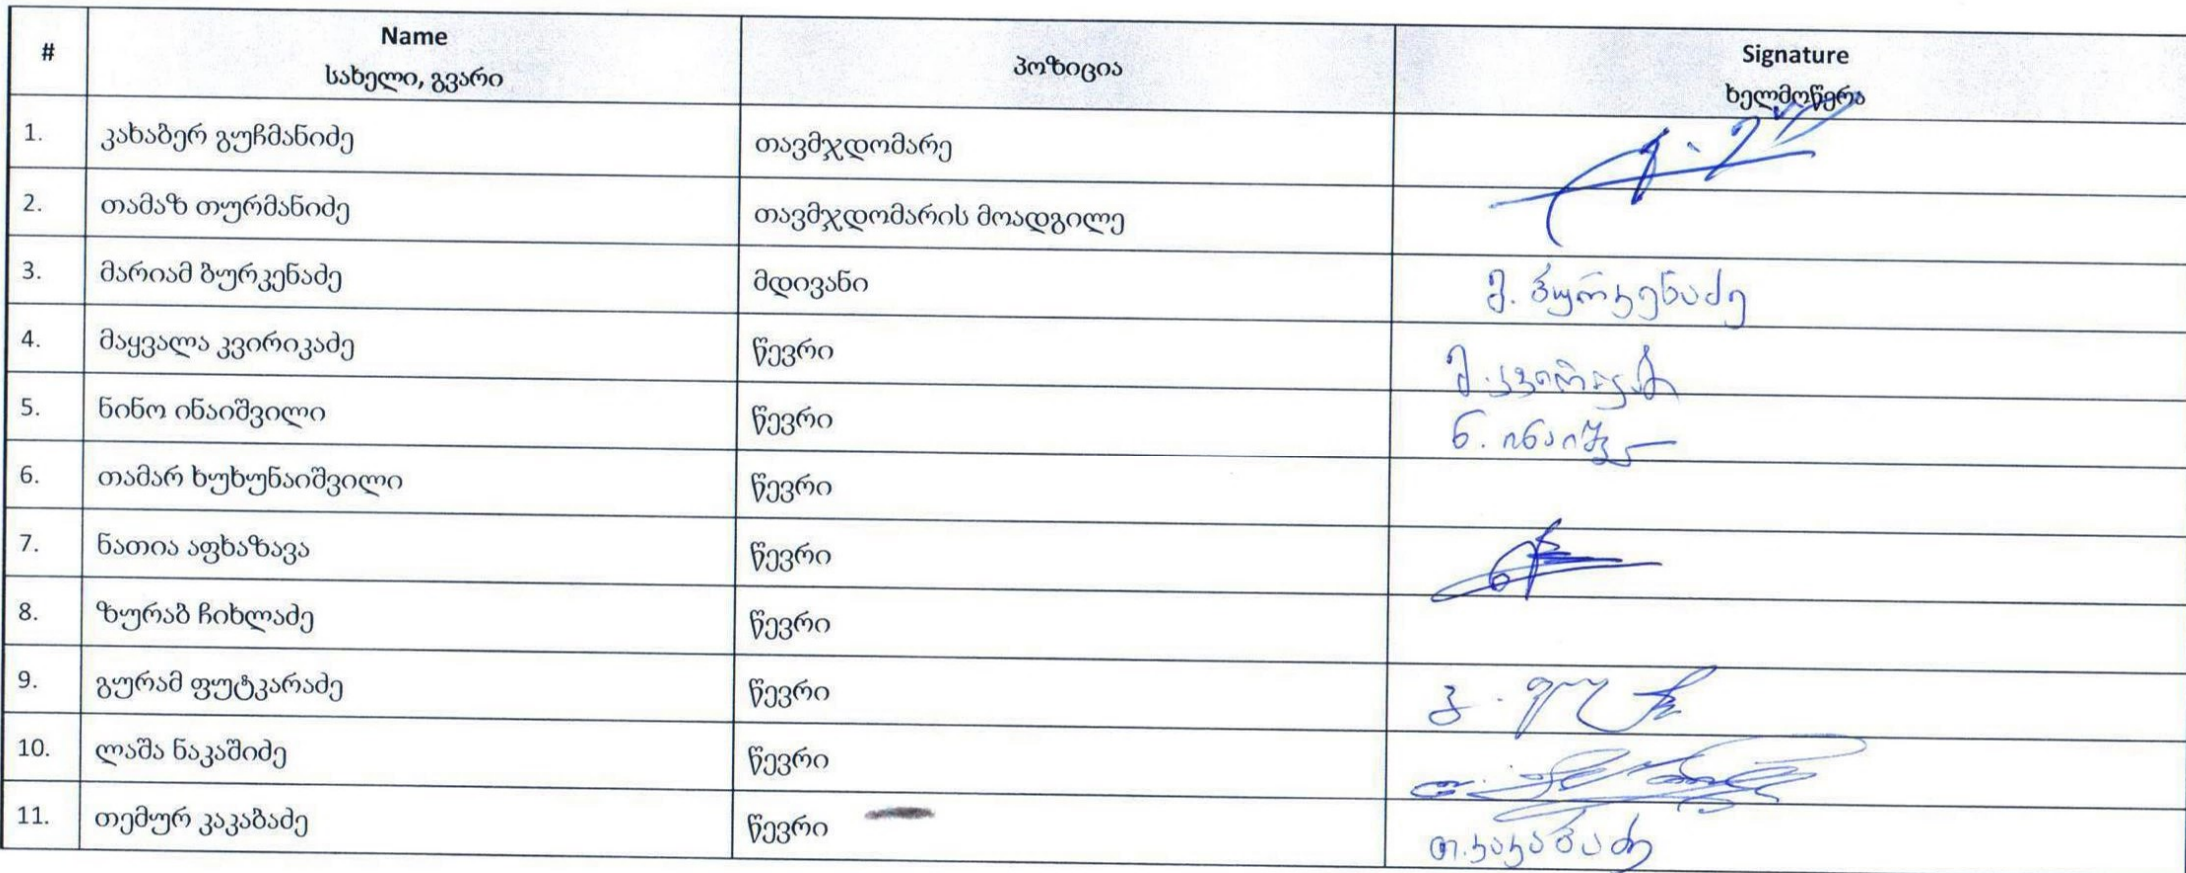 #
Name
სახელი, გვარი
პოზიცია
Signature
ხელმოწერა
1. კახაბერ გუჩმანიძე თავმჯდომარე
2. თამაზ თურმანიძე თავმჯდომარის მოადგილე
3. მარიამ ბურკენაძე მდივანი მ. ბურკენაძე
4. მაყვალა კვირიკაძე წევრი
5. ნინო ინაიშვილი წევრი
6. თამარ ხუხუნაიშვილი წევრი
7. ნათია აფხაზავა წევრი
8. ზურაბ ჩიხლაძე წევრი
9. გურამ ფუტკარაძე წევრი
10. ლაშა ნაკაშიძე წევრი
11. თემურ კაკაბაძე წევრი თ. კაკაბაძე